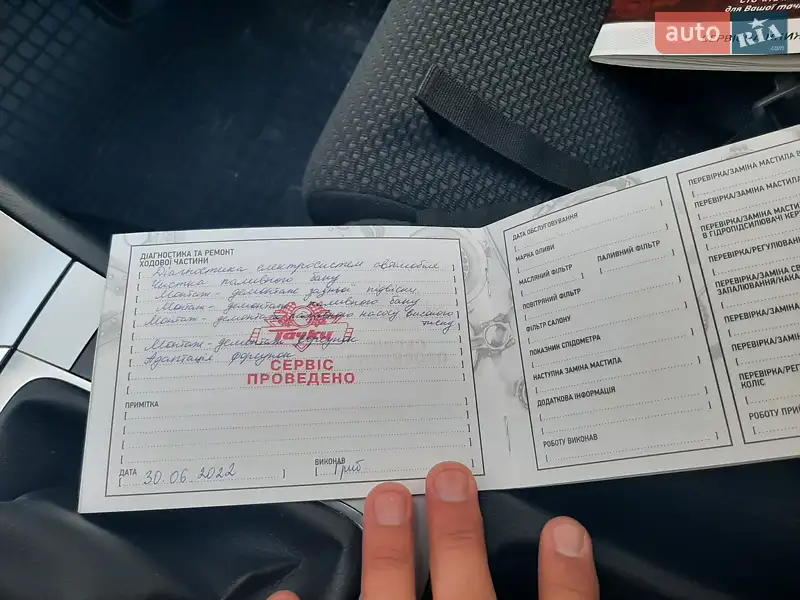 для Вашої тачки
auto RIA .com
ДІАГНОСТИКА ТА РЕМОНТ
ХОДОВОЇ ЧАСТИНИ
Діагностика електросистем автомобіля
Чистка паливного баку
Монтаж - демонтаж задньої підвіски
Монтаж - демонтаж паливного баку
Монтаж - демонтаж паливного насосу високого
тиску
Монтаж - демонтаж форсунок
Адаптація форсунок
Тачки
СЕРВІС
ПРОВЕДЕНО
ПРИМІТКА
ДАТА 30.06.2022
ВИКОНАВ
ДАТА ОБСЛУГОВУВАННЯ
МАРКА ОЛИВИ
МАСЛЯНИЙ ФІЛЬТР
ПАЛИВНИЙ ФІЛЬТР
ПОВІТРЯНИЙ ФІЛЬТР
ФІЛЬТР САЛОНУ
ПОКАЗНИК СПІДОМЕТРА
НАСТУПНА ЗАМІНА МАСТИЛА
ДОДАТКОВА ІНФОРМАЦІЯ
РОБОТУ ВИКОНАВ
ПЕРЕВІРКА/ЗАМІНА МАСТИЛА В
ПЕРЕВІРКА/ЗАМІНА МАСТИЛА
ПЕРЕВІРКА/ЗАМІНА МАСТИ
В ГІДРОПІДСИЛЮВАЧІ КЕР
ПЕРЕВІРКА/РЕГУЛЮВАНН
ПЕРЕВІРКА/ЗАМІНА СВ
ЗАПАЛЮВАННЯ/НАКА
ПЕРЕВІРКА/ЗАМІН
ПЕРЕВІРКА/ЗАМІ
ПЕРЕВІРКА/РЕГ
КОЛІС
РОБОТУ ПРИ